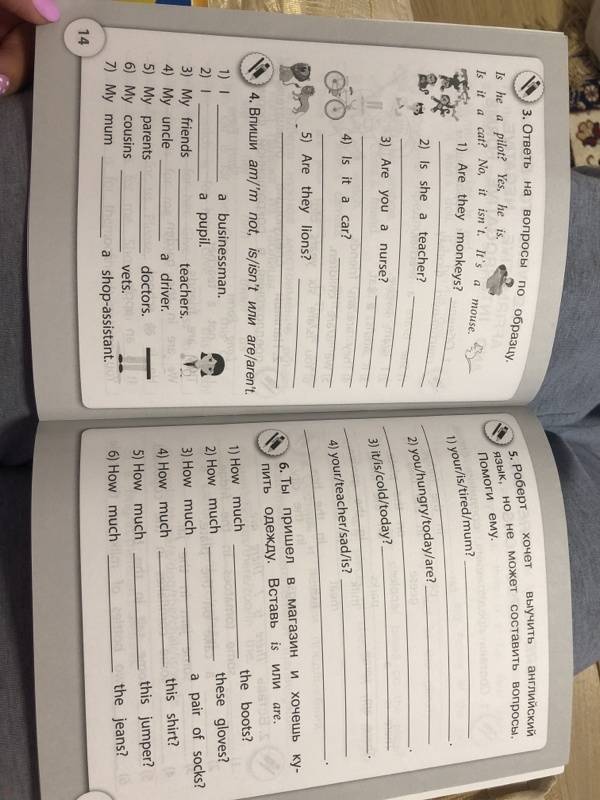 3. Ответь на вопросы по образцу.
Is he a pilot? Yes, he is.
Is it a cat? No, it isn't. It's a mouse.
1) Are they monkeys?
2) Is she a teacher?
3) Are you a nurse?
4) Is it a car?
5) Are they lions?
4. Впиши am/'m not, is/isn't или are/aren't.
1) I ____ a businessman.
2) I ____ a pupil.
3) My friends ____ teachers.
4) My uncle ____ a driver.
5) My parents ____ doctors.
6) My cousins ____ vets.
7) My mum ____ a shop-assistant.
14
5. Роберт хочет выучить английский
язык, но не может составить вопросы.
Помоги ему.
1) your/is/tired/mum?
2) you/hungry/today/are?
3) it/is/cold/today?
4) your/teacher/sad/is?
6. Ты пришел в магазин и хочешь ку-
пить одежду. Вставь is или are.
1) How much ____ the boots?
2) How much ____ these gloves?
3) How much ____ a pair of socks?
4) How much ____ this shirt?
5) How much ____ this jumper?
6) How much ____ the jeans?